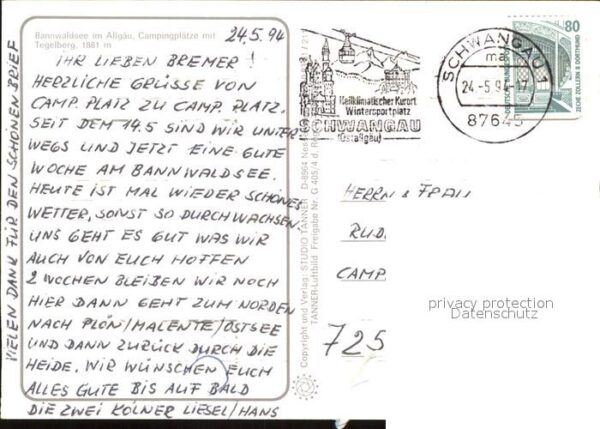 Bannwaldsee im Allgäu, Campingplätze mit
Tegelberg, 1881 m
24.5.94
IHR LIEBEN BREMER!
HERZLICHE GRÜSSE VON
CAMP. PLATZ ZU CAMP. PLATZ.
SEIT DEM 14.5 SIND WIR UNTER
WEGS UND JETZT EINE GUTE
WOCHE AM BANNWALDSEE.
HEUTE IST MAL WIEDER SCHÖNES
WETTER, SONST SO DURCHWACHSEN.
UNS GEHT ES GUT WAS WIR
AUCH VON EUCH HOFFEN
2 WOCHEN BLEIBEN WIR NOCH
HIER DANN GEHT ZUM NORDEN
NACH PLÖN/MALENTE/OSTSEE
UND DANN ZURÜCK DURCH DIE
HEIDE. WIR WÜNSCHEN EUCH
ALLES GUTE BIS AUF BALD
DIE ZWEI KÖLNER LIESEL/HANS
VIELEN DANK FÜR DEN SCHÖNEN BRIEF
Copyright und Verlag: STUDIO TANNER D-8964
TANNER-Luftbild Freigabe Nr. G 405/4 d.
Heilklimatischer Kurort
Wintersportplatz
SCHWANGAU
(Ostallgäu)
SCHWANGAU
ma
24.-5.94-17
87645
80
DEUTSCHE BUNDESPOST
ZECHE ZOLLERN II DORTMUND
HERRN & FRAU
RUD.
CAMP.
725
privacy protection
Datenschutz